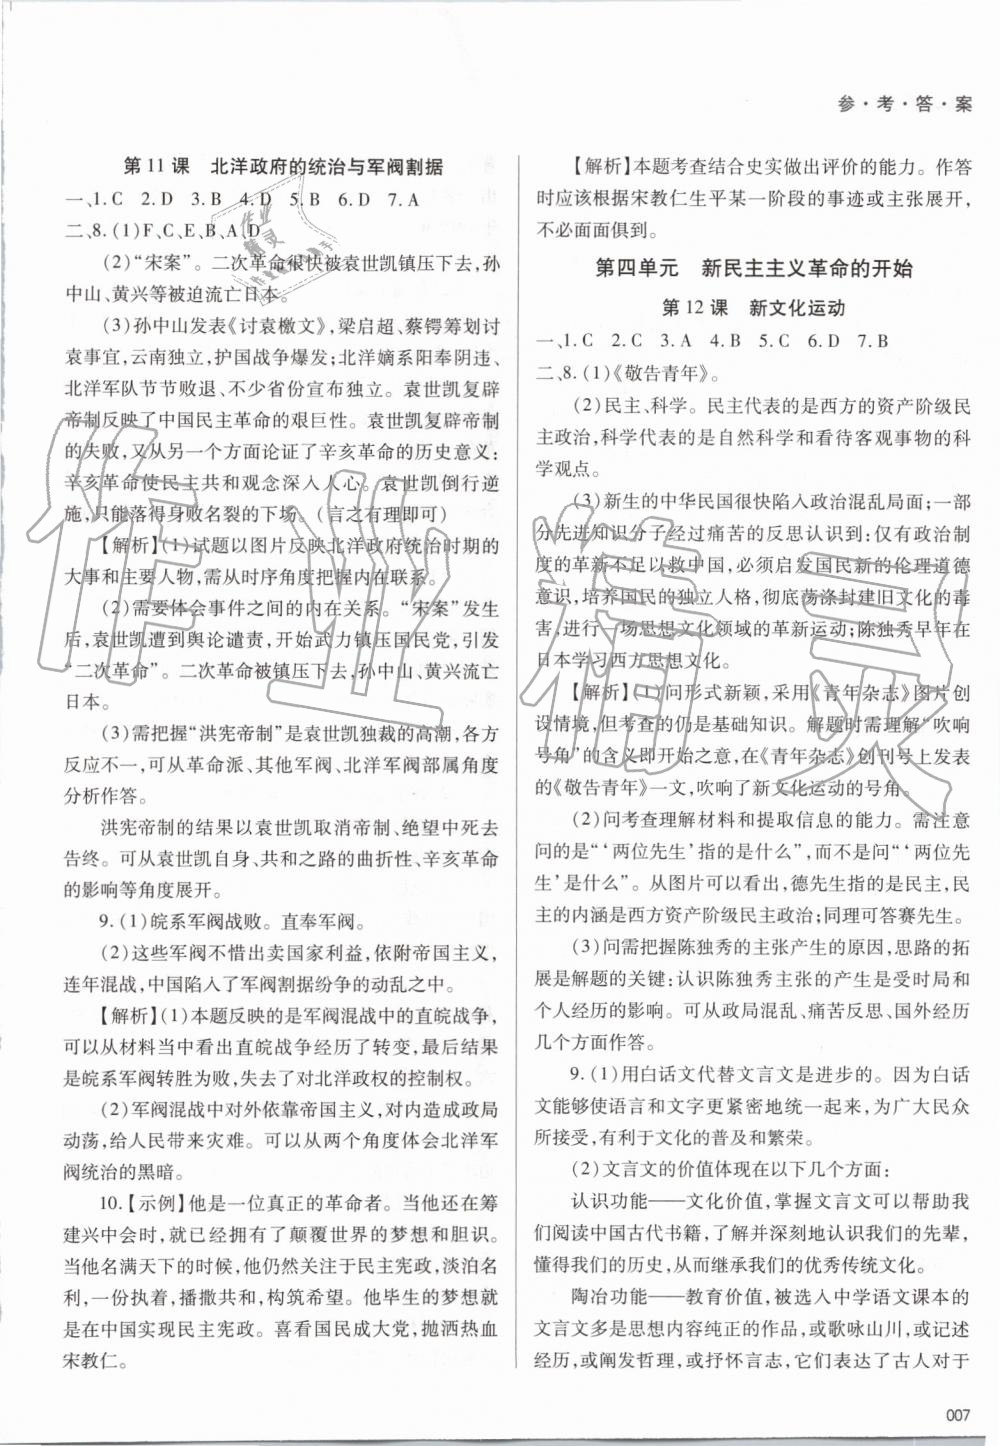 参·考·答·案
第11课　北洋政府的统治与军阀割据
一、1.C　2.D　3.B　4.D　5.B　6.D　7.A
二、8.(1)F、C、E、B、A、D
(2)“宋案”。二次革命很快被袁世凯镇压下去,孙
中山、黄兴等被迫流亡日本。
(3)孙中山发表《讨袁檄文》,梁启超、蔡锷筹划讨
袁事宜,云南独立,护国战争爆发;北洋嫡系阳奉阴违、
北洋军队节节败退、不少省份宣布独立。袁世凯复辟
帝制反映了中国民主革命的艰巨性。袁世凯复辟帝制
的失败,又从另一个方面论证了辛亥革命的历史意义:
辛亥革命使民主共和观念深入人心。袁世凯倒行逆
施,只能落得身败名裂的下场。(言之有理即可)
【解析】(1)试题以图片反映北洋政府统治时期的
大事和主要人物,需从时序角度把握内在联系。
(2)需要体会事件之间的内在关系。“宋案”发生
后,袁世凯遭到舆论谴责,开始武力镇压国民党,引发
“二次革命”。二次革命被镇压下去,孙中山、黄兴流亡
日本。
(3)需把握“洪宪帝制”是袁世凯独裁的高潮,各方
反应不一,可从革命派、其他军阀、北洋军阀部属角度
分析作答。
洪宪帝制的结果以袁世凯取消帝制、绝望中死去
告终。可从袁世凯自身、共和之路的曲折性、辛亥革命
的影响等角度展开。
9.(1)皖系军阀战败。直奉军阀。
(2)这些军阀不惜出卖国家利益,依附帝国主义,
连年混战,中国陷入了军阀割据纷争的动乱之中。
【解析】(1)本题反映的是军阀混战中的直皖战争,
可以从材料当中看出直皖战争经历了转变,最后结果
是皖系军阀转胜为败,失去了对北洋政权的控制权。
(2)军阀混战中对外依靠帝国主义,对内造成政局
动荡,给人民带来灾难。可以从两个角度体会北洋军
阀统治的黑暗。
10.【示例】他是一位真正的革命者。当他还在筹
建兴中会时,就有了颠覆世界的梦想和胆识。
当他名满天下的时候,他仍然关注于民主宪政,淡泊名
利,一份执着,播撒共和,构筑希望。他毕生的梦想就
是在中国实现民主宪政。喜看国民成大党,抛洒热血
宋教仁。
【解析】本题考查结合史实做出评价的能力。作答
时应该根据宋教仁生平某一阶段的事迹或主张展开,
不必面面俱到。
第四单元　新民主主义革命的开始
第12课　新文化运动
一、1.C　2.C　3.A　4.B　5.C　6.D　7.B
二、8.(1)《敬告青年》。
(2)民主、科学。民主代表的是西方的资产阶级民
主政治,科学代表的是自然科学和看待客观事物的科
学观点。
(3)新生的中华民国很快陷入政治混乱局面;一部
分先进知识分子经过痛苦的反思认识到:仅有政治制
度的革新不足以救中国,必须启发国民新的伦理道德
意识,培养国民的独立人格,彻底荡涤封建旧文化的毒
害,进行一场思想文化领域的革新运动;陈独秀早年在
日本学习西方思想文化。
【解析】(1)问形式新颖,采用《青年杂志》图片创
设情境,但考查的仍是基础知识。解题时需理解“吹响
号角”的含义即开始之意,在《青年杂志》创刊号上发表
的《敬告青年》一文,吹响了新文化运动的号角。
(2)问考查理解材料和提取信息的能力。需注意
问的是“‘两位先生’指的是什么”,而不是问“‘两位先
生’是什么”。从图片可以看出,德先生指的是民主,民
主的内涵是西方资产阶级民主政治;同理可答赛先生。
(3)问需把握陈独秀的主张产生的原因,思路的拓
展是解题的关键:认识陈独秀主张的产生是受时局和
个人经历的影响。可从政局混乱、痛苦反思、国外经历
几个方面作答。
9.(1)用白话文代替文言文是进步的。因为白话
文能够使语言和文字更紧密地统一起来,为广大民众
所接受,有利于文化的普及和繁荣。
(2)文言文的价值体现在以下几个方面:
认识功能——文化价值,掌握文言文可以帮助我
们阅读中国古代书籍,了解并深刻地认识我们的先辈,
懂得我们的历史,从而继承我们的优秀传统文化。
陶冶功能——教育价值,被选入中学语文课本的
文言文多是思想内容纯正的作品,或歌咏山川,或记述
经历,或阐发哲理,或抒怀言志,它们表达了古人对于
007
作业精灵